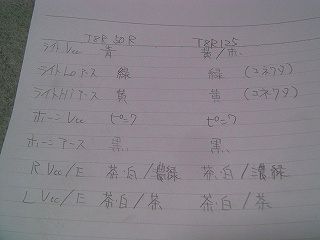 TZR 50R TZR125
ライトVcc 青 黄/赤
ライトLoアース 緑 緑 (コネクタ)
ライトHiアース 黄 黄 (コネクタ)
ホーンVcc ピンク ピンク
ホーンアース 黒 黒
R Vcc/E 茶・白/濃緑 茶・白/濃緑
L Vcc/E 茶・白/茶 茶・白/茶